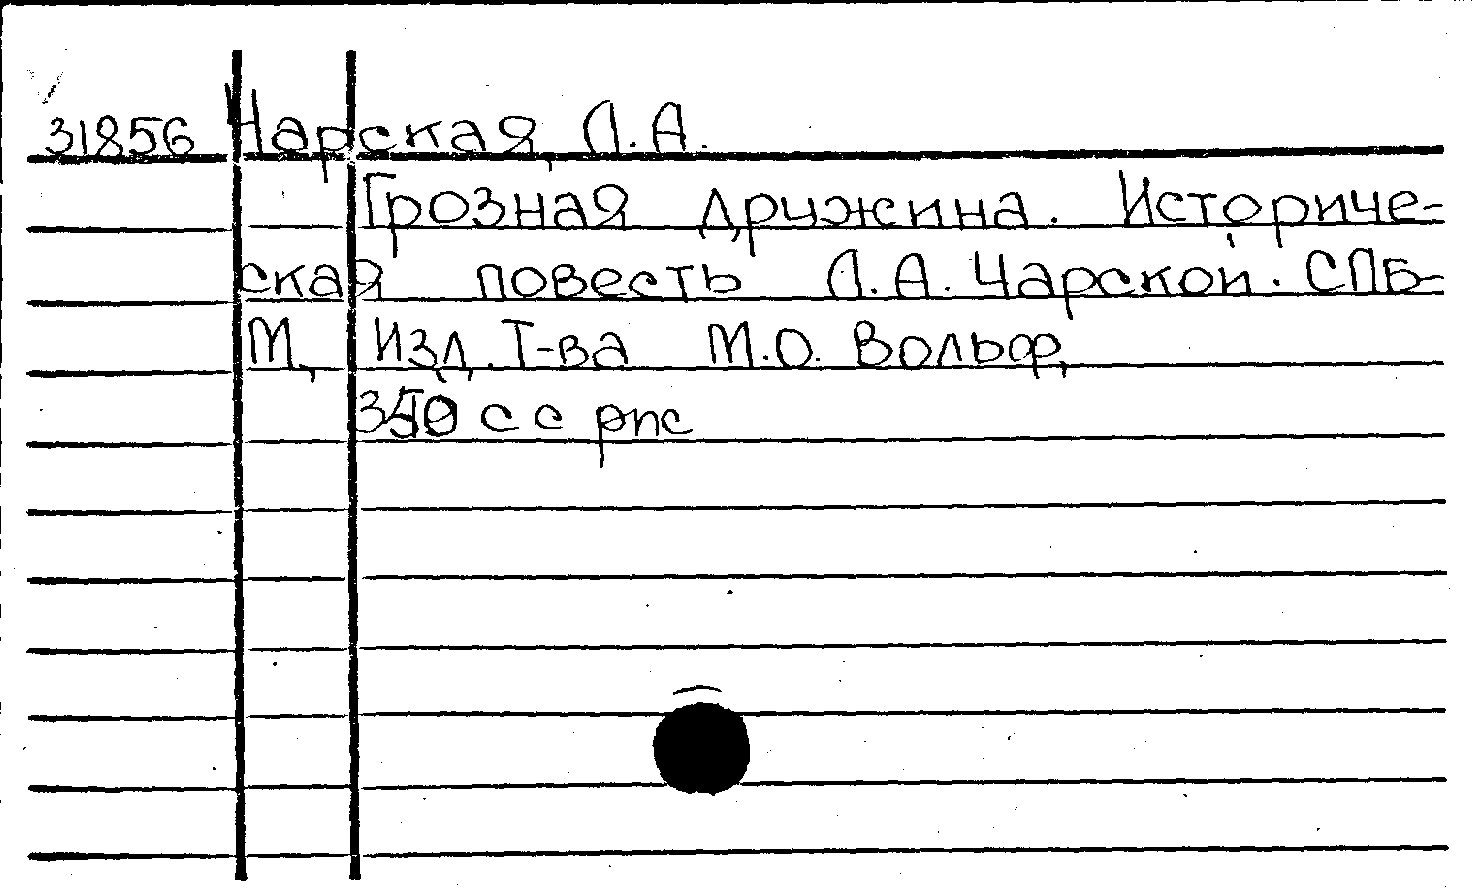 31856 Чарская, Л.А.
Грозная дружина. Историче-
ская повесть Л.А. Чарской. СПБ-
М, Изд. Т-ва М.О. Вольф,
350 с с рпс